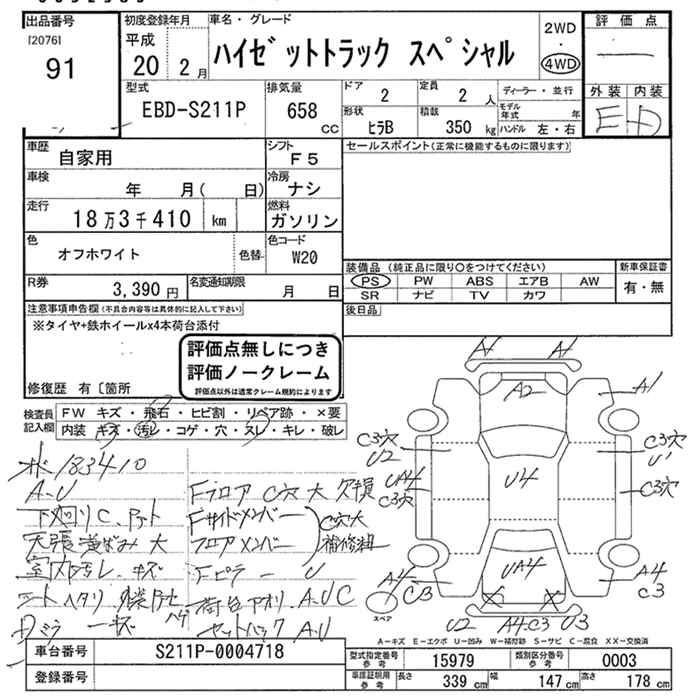 出品番号
[2076]
91
初度登録年月
平成
20 2月
車名・グレード
ハイゼットトラック スペシャル
2WD
・
4WD
評価点
外装 内装
E D
型式
EBD-S211P
排気量
658
cc
ドア
2
定員
2 人
形状
ヒラB
積載
350 kg
ディーラー・並行
モデル年式 年
ハンドル 左・右
車歴
自家用
シフト
F5
セールスポイント(正常に機能するものに限ります)
車検
年 月( 日)
冷房
ナシ
走行
18万3千410 km
燃料
ガソリン
色
オフホワイト
色替
色コード
W20
R券
3,390 円
名変通知期限
月 日
装備品 (純正品に限り○をつけてください)
新車保証書
PS PW ABS エアB AW
有・無
SR ナビ TV カワ
後日品
注意事項申告欄(不具合内容等は具体的に記入して下さい)
※タイヤ+鉄ホイールx4本荷台添付
評価点無しにつき
評価ノークレーム
評価点以外は通常クレーム規約によります
修復歴 有〔箇所
検査員
記入欄
FW キズ・飛石・ヒビ割・リペア跡・×要
内装 キズ・汚レ・コゲ・穴・スレ・キレ・破レ
183410
A.U
下廻りC
Fフロア C穴大 欠損
Fサイドメンバー
フロアメンバー
C穴大
補修組
天張黄ばみ 大
室内汚レ キズ
Fピラー U
シートヘタリ
荷台アオリ A.U C
Dミラー
セットバック A.U
A1
A1
A2
A1
C3穴
U2
C3穴
U1
UA4
C3穴
U4
C3穴
UA4
A4
C3
A4
C3
スペア
U2
A4C3
U3
A−キズ E−エクボ U−凹み W−補修跡 S−サビ C−腐食 XX−交換済
車台番号
S211P-0004718
登録番号
型式指定番号
参考
15979
類別区分番号
参考
0003
車庫証明用
参考
長さ
339 cm
幅
147 cm
高さ
178 cm